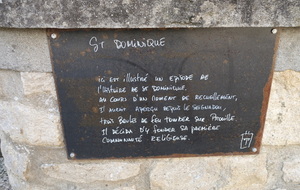 St DOMINIQUE
ICI EST ILLUSTRÉ UN EPISODE DE
L'HISTOIRE DE ST DOMINIQUE.
AU COURS D'UN MOMENT DE RECUEILLEMENT,
IL AURAIT APERÇU DEPUIS LE SEIGNADOU,
TROIS BOULES DE FEU TOMBER SUR PROUILLE.
IL DÉCIDA D'Y FONDER SA PREMIÈRE
COMMUNAUTÉ RELIGIEUSE.